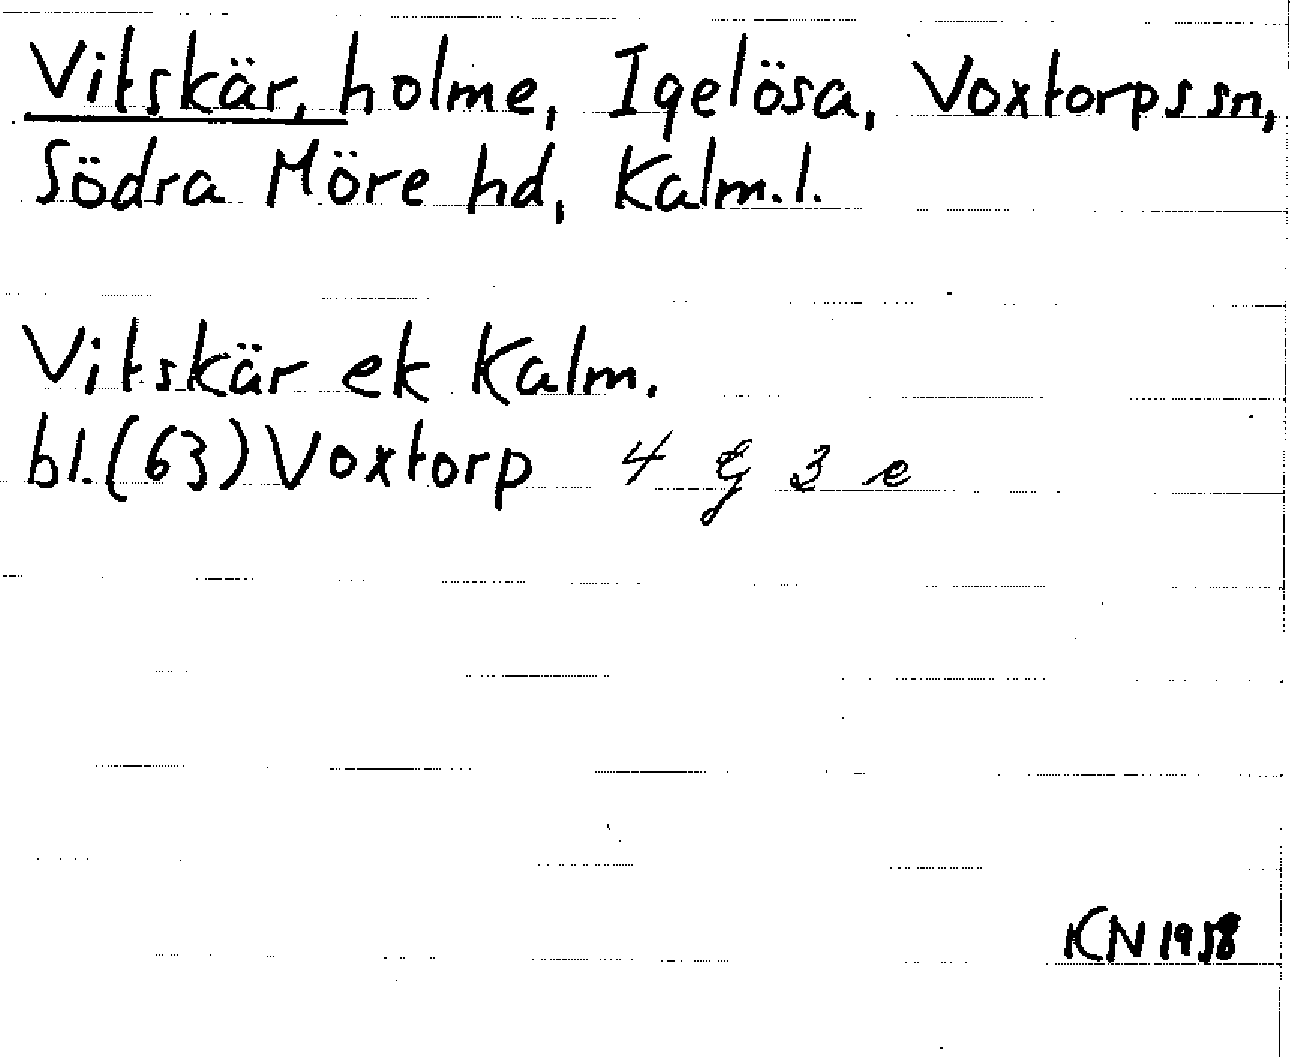 Vitskär, holme, Igelösa, Voxtorps sn,
Södra Möre hd, Kalm. l.
Vitskär ek Kalm.
bl. (63) Voxtorp 4 G 3 e
KN 1958